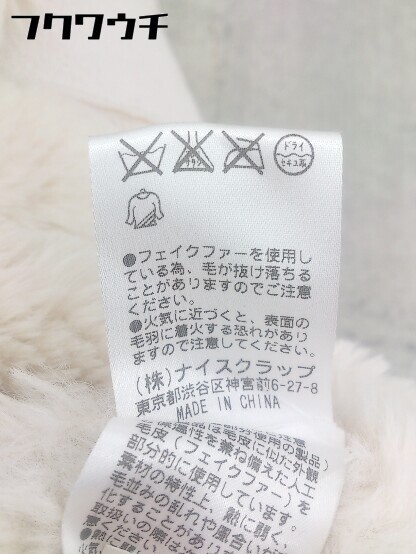 フクワウチ
エンソサラシ
ドライ
セキユ系
●フェイクファーを使用し
ている為、毛が抜け落ちる
ことがありますのでご注意
ください。
●火気に近づくと、表面の
毛羽に着火する恐れがあり
ますので注意してください。
(株)ナイスクラップ
東京都渋谷区神宮前6-27-8
MADE IN CHINA
毛皮に似た外観
適性を兼ね備えた人工
毛皮(フェイクファー)を
部分的に使用しています。
素材の特性上、熱に弱く、
毛並みの乱れや風合いが
化することがあり
取扱いの際は
ください
火気